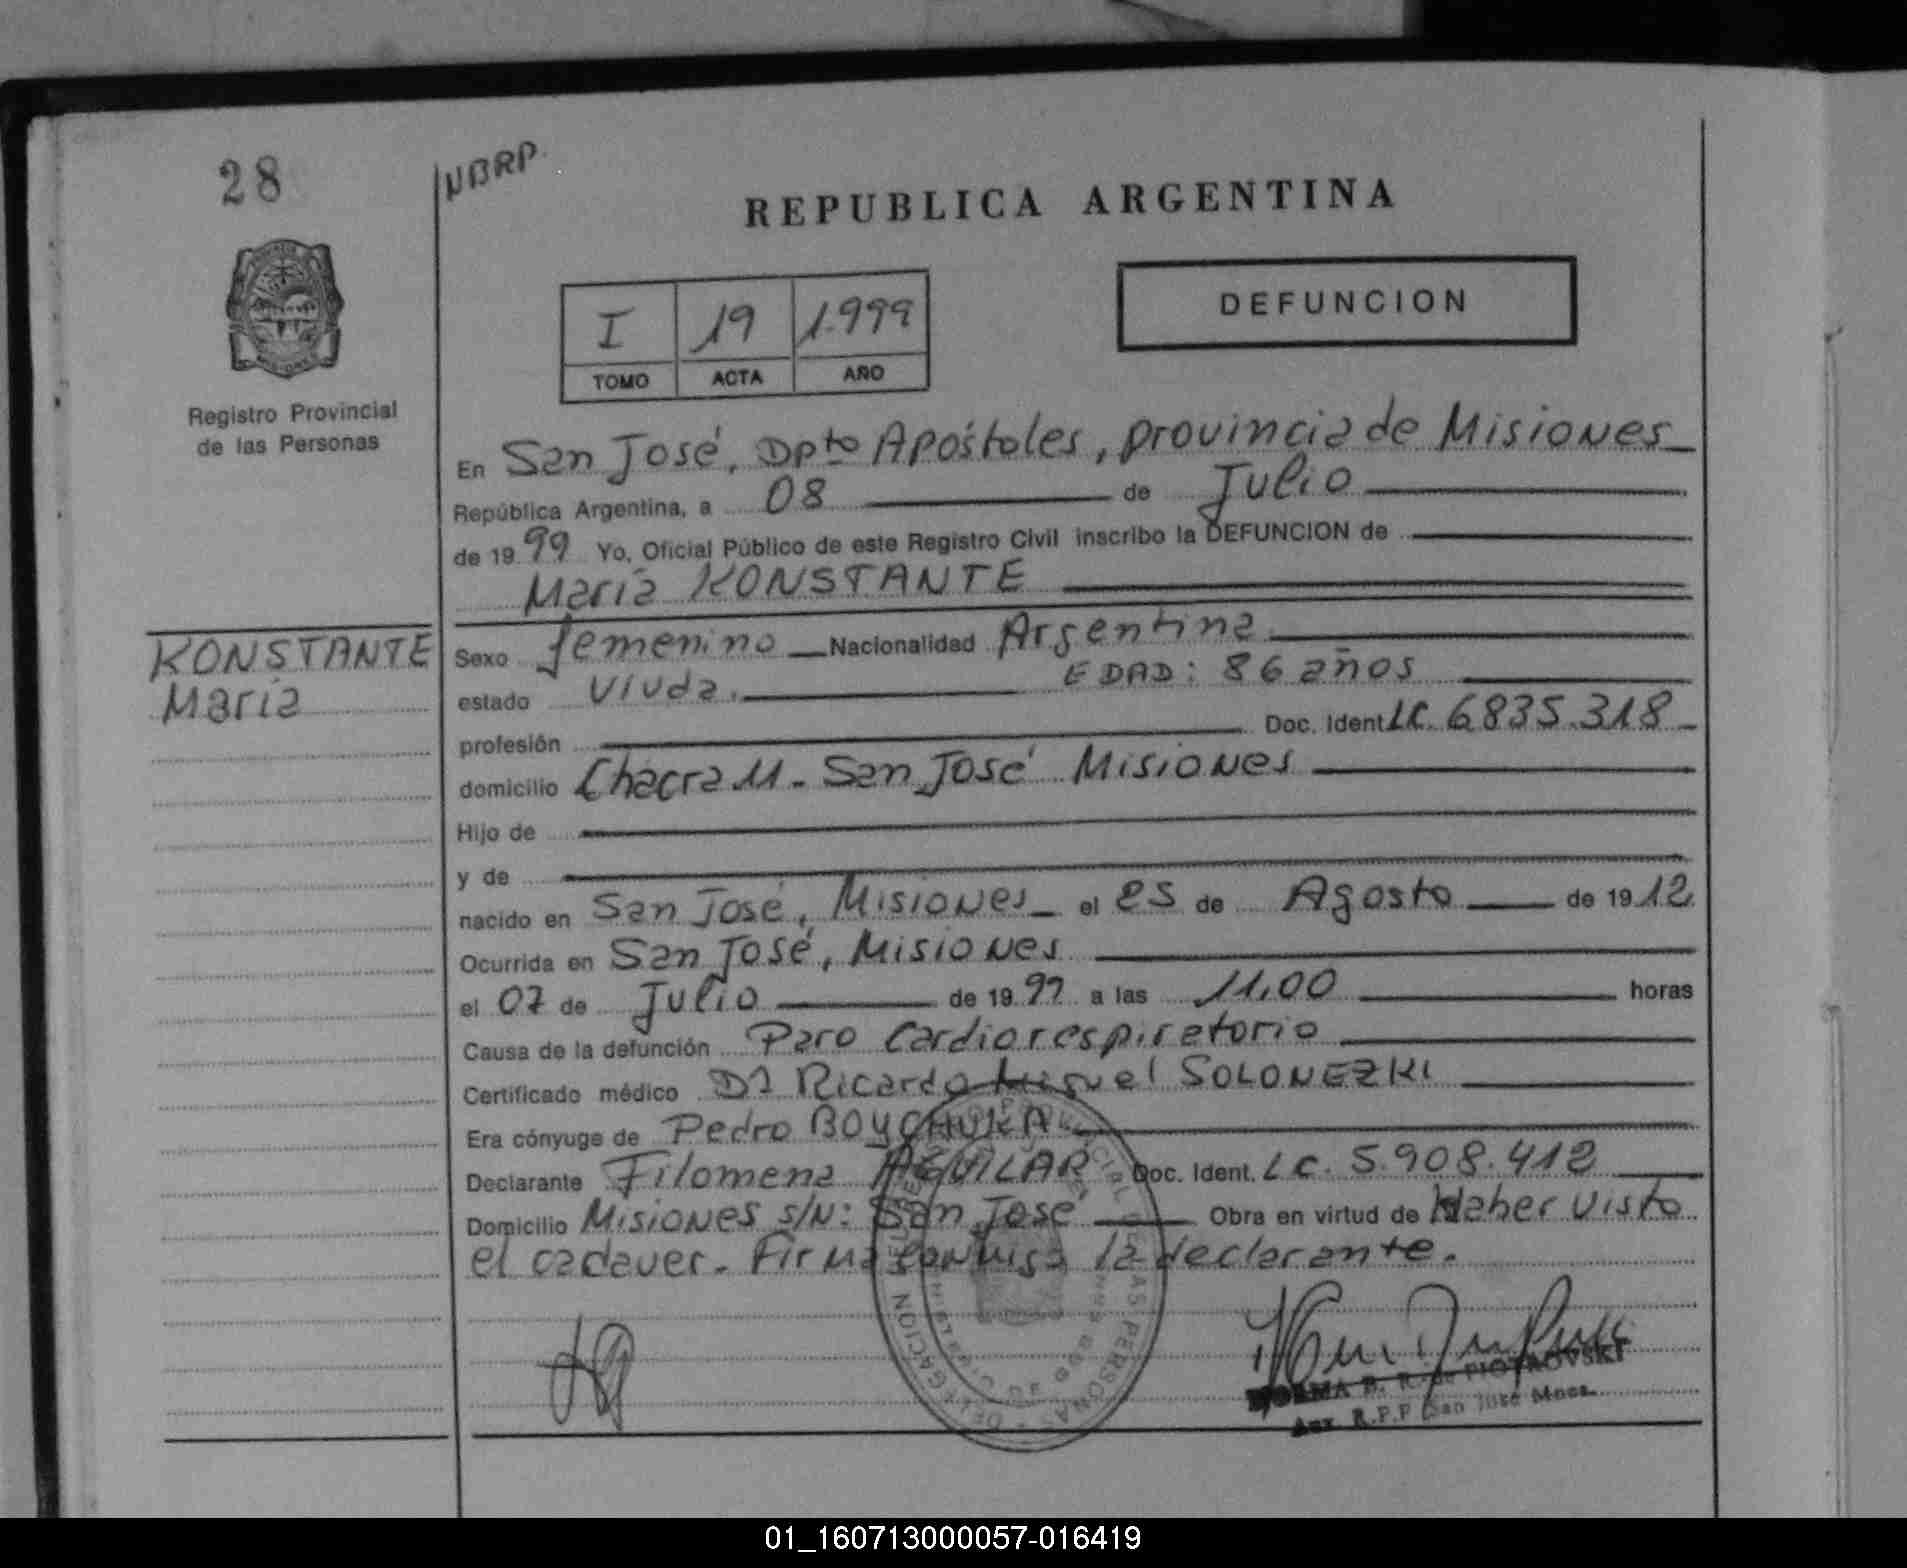 28
NBRP.
REPUBLICA ARGENTINA
I 19 1.999
TOMO ACTA AÑO
DEFUNCION
Registro Provincial
de las Personas
En San José, Dpto Apóstoles, provincia de Misiones
República Argentina, a 08 de Julio
de 1999 Yo, Oficial Público de este Registro Civil inscribo la DEFUNCION de
María KONSTANTE
KONSTANTE
María
Sexo femenino Nacionalidad Argentina
estado viuda. EDAD: 86 años
profesión Doc. Ident. LC. 6835.318
domicilio Chacra 11 - San José Misiones
Hijo de
y de
nacido en San José, Misiones el 25 de Agosto de 1912
Ocurrida en San José, Misiones
el 07 de Julio de 1999 a las 11,00 horas
Causa de la defunción Paro Cardiorespiratorio
Certificado médico Dr Ricardo Miguel SOLONEZKI
Era cónyuge de Pedro BOYCHUKA
Declarante Filomena AGUILAR Doc. Ident. LC. 5.908.412
Domicilio Misiones s/N: San José Obra en virtud de Haber visto
el cadaver. Firma conmigo la declarante.
NORMA B. R. de PIOTROVSKI
Aux. R.P.P San José Mnes.
DELEGACION
PERSONAS
01_160713000057-016419